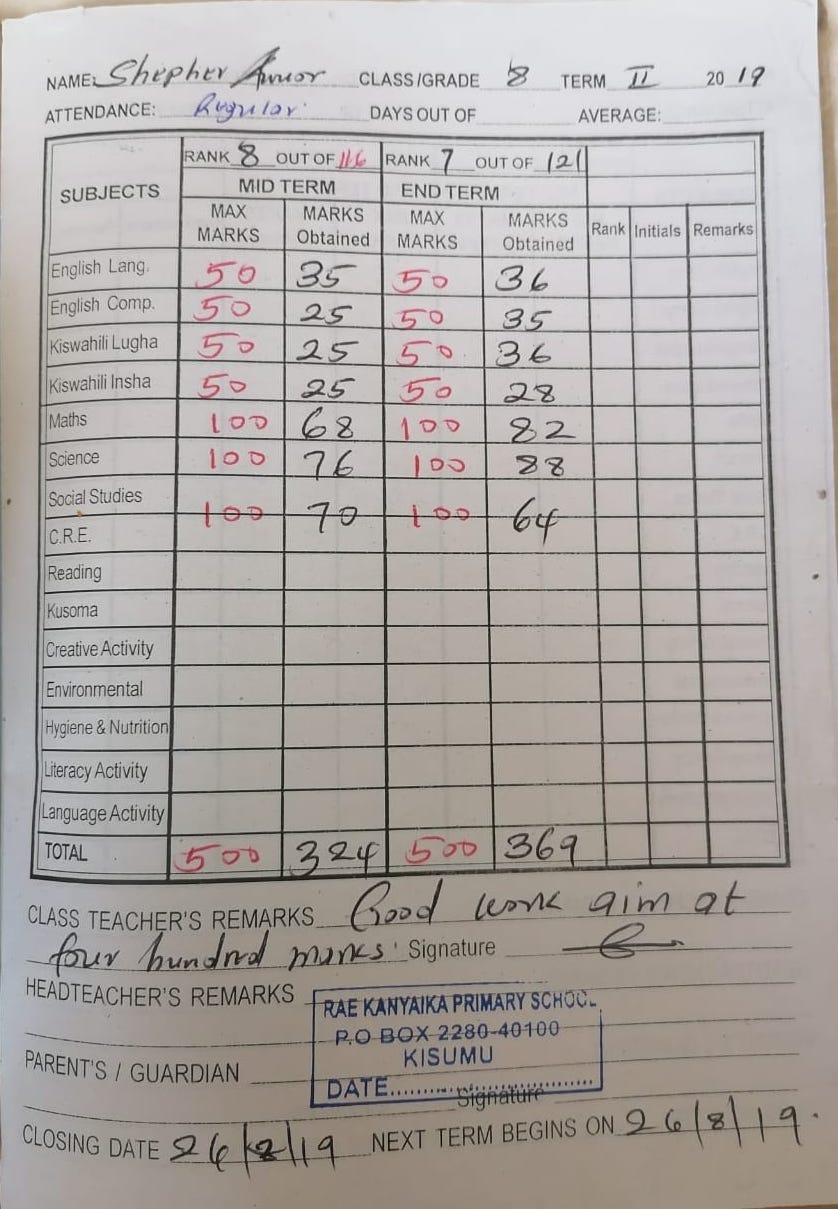 NAME: Shepher Amor CLASS/GRADE 8 TERM II 2019
ATTENDANCE: Regular DAYS OUT OF AVERAGE:
SUBJECTS RANK 8 OUT OF 116 RANK 7 OUT OF 121
MID TERM END TERM
MAX MARKS MARKS Obtained MAX MARKS MARKS Obtained Rank Initials Remarks
English Lang. 50 35 50 36
English Comp. 50 25 50 35
Kiswahili Lugha 50 25 50 36
Kiswahili Insha 50 25 50 28
Maths 100 68 100 82
Science 100 76 100 88
Social Studies 100 70 100 64
C.R.E.
Reading
Kusoma
Creative Activity
Environmental
Hygiene & Nutrition
Literacy Activity
Language Activity
TOTAL 500 324 500 369
CLASS TEACHER'S REMARKS Good work aim at
four hundred marks. Signature
HEADTEACHER'S REMARKS
RAE KANYAIKA PRIMARY SCHOOL
P.O BOX 2280-40100
KISUMU
PARENT'S / GUARDIAN
DATE
Signature
CLOSING DATE 26/2/19 NEXT TERM BEGINS ON 26/8/19.